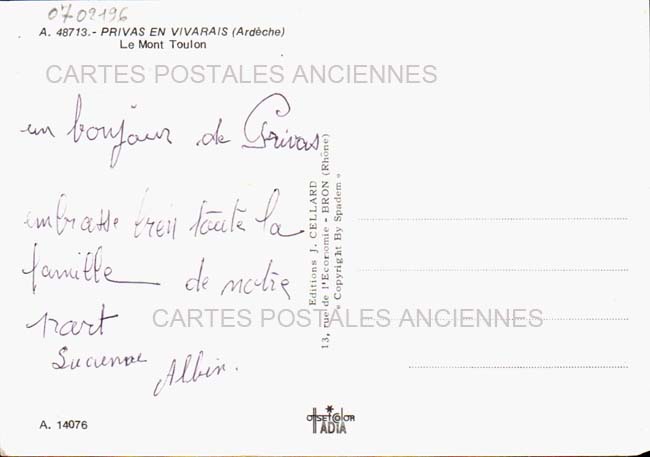 0702196
A. 48713.- PRIVAS EN VIVARAIS (Ardèche)
Le Mont Toulon
CARTES POSTALES ANCIENNES
un bonjour de Privas
embrasse bien toute la
famille de notre
part
Lucienne
Albin.
CARTES POSTALES ANCIENNES
Editions J. CELLARD
13, rue de l'Economie - BRON (Rhône)
« Copyright By Spadem »
A. 14076
OFFSETCOLOR
IADIA